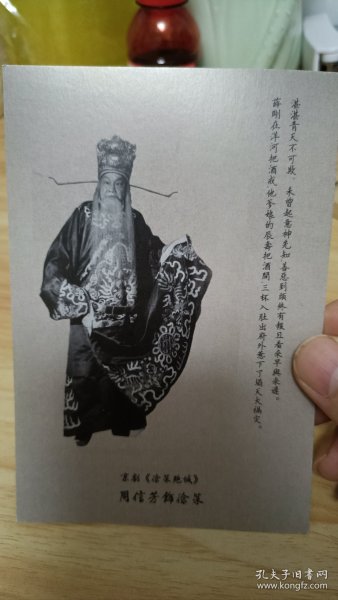 湛湛青天不可欺，未曾起意神先知善恶到头终有报且看来早与来迟。
薛刚在洋河把酒戒他爹娘的辰寿把酒开三杯入肚出府外惹下了塌天大祸灾。
京剧《徐策跑城》
周信芳饰徐策
孔夫子旧书网
www.kongfz.com